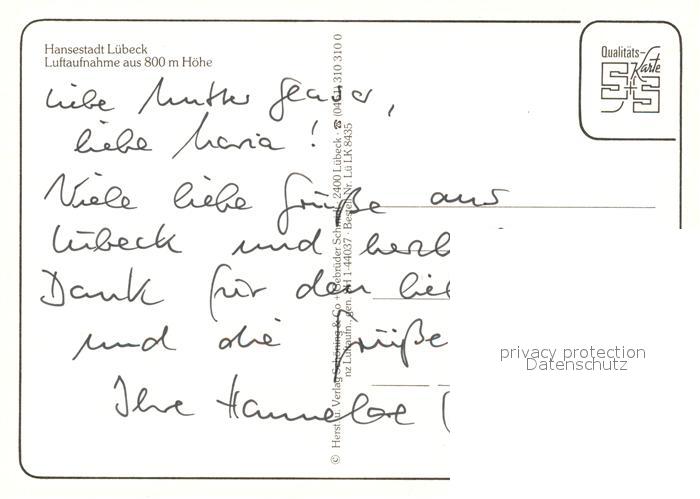 Hansestadt Lübeck
Luftaufnahme aus 800 m Höhe
Qualitäts-
Karte
S+S
Liebe Mutter
liebe Maria!
Viele liebe Grüße aus
Lübeck und herz
Dank für den lie
und die Grüße
Ihre Hannelore (
© Herst. u. Verlag Schöning & Co + Gebrüder Schmidt, 2400 Lübeck · ☎ (0451) 310 310 0
nz Luftaufn.: gen. 1-44037 · Bestell-Nr. Lü LK 8435
privacy protection
Datenschutz